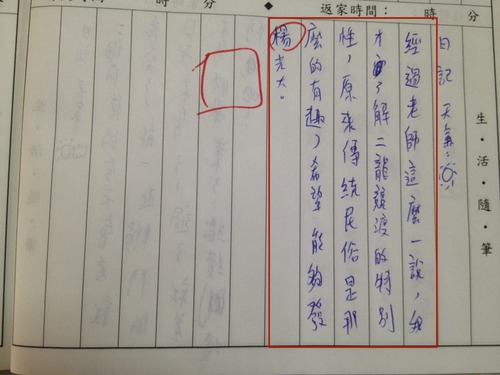 時 分 返家時間： 時 分
生・活・隨・筆
日記 天氣：
經過老師這麼一說，我
才了解二龍競渡的特別
性，原來傳統民俗是那
麼的有趣，希望能夠發
楊光大。